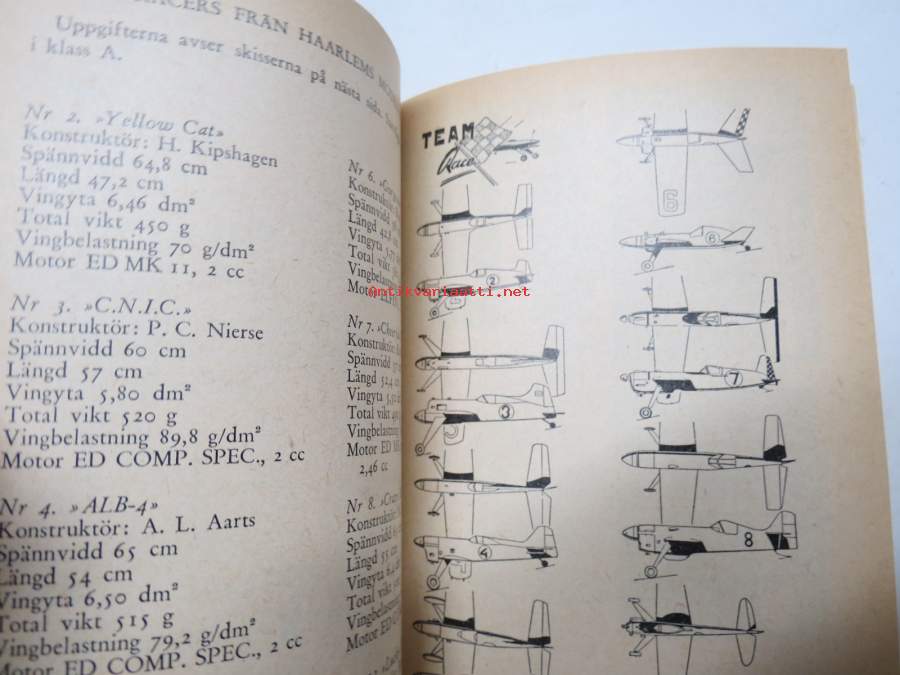 RACERS FRÅN HAARLEMS
Uppgifterna avser skisserna på nästa sida.
i klass A.
Nr 2. »Yellow Cat»
Konstruktör: H. Kipshagen
Spännvidd 64,8 cm
Längd 47,2 cm
Vingyta 6,46 dm²
Total vikt 450 g
Vingbelastning 70 g/dm²
Motor ED MK 11, 2 cc
Nr 3. »C.N.I.C.»
Konstruktör: P. C. Nierse
Spännvidd 60 cm
Längd 57 cm
Vingyta 5,80 dm²
Total vikt 520 g
Vingbelastning 89,8 g/dm²
Motor ED COMP. SPEC., 2 cc
Nr 4. »ALB-4»
Konstruktör: A. L. Aarts
Spännvidd 65 cm
Längd 54 cm
Vingyta 6,50 dm²
Total vikt 515 g
Vingbelastning 79,2 g/dm²
Motor ED COMP. SPEC., 2 cc
Nr 6.
Konstruktör
Spännvidd
Längd 42,8
Vingyta
Total vikt
Vingbelastning
Motor
Nr 7.
Konstruktör
Spännvidd
Längd 52,4
Vingyta
Total vikt
Vingbelastning
Motor ED
2,46 cc
Nr 8.
Konstruktör
Spännvidd
Längd 55 cm
Vingyta
Total vikt
Vingbelastning
Motor ED
TEAM
Race
6
2
6
3
7
4
8
antikvariantti.net